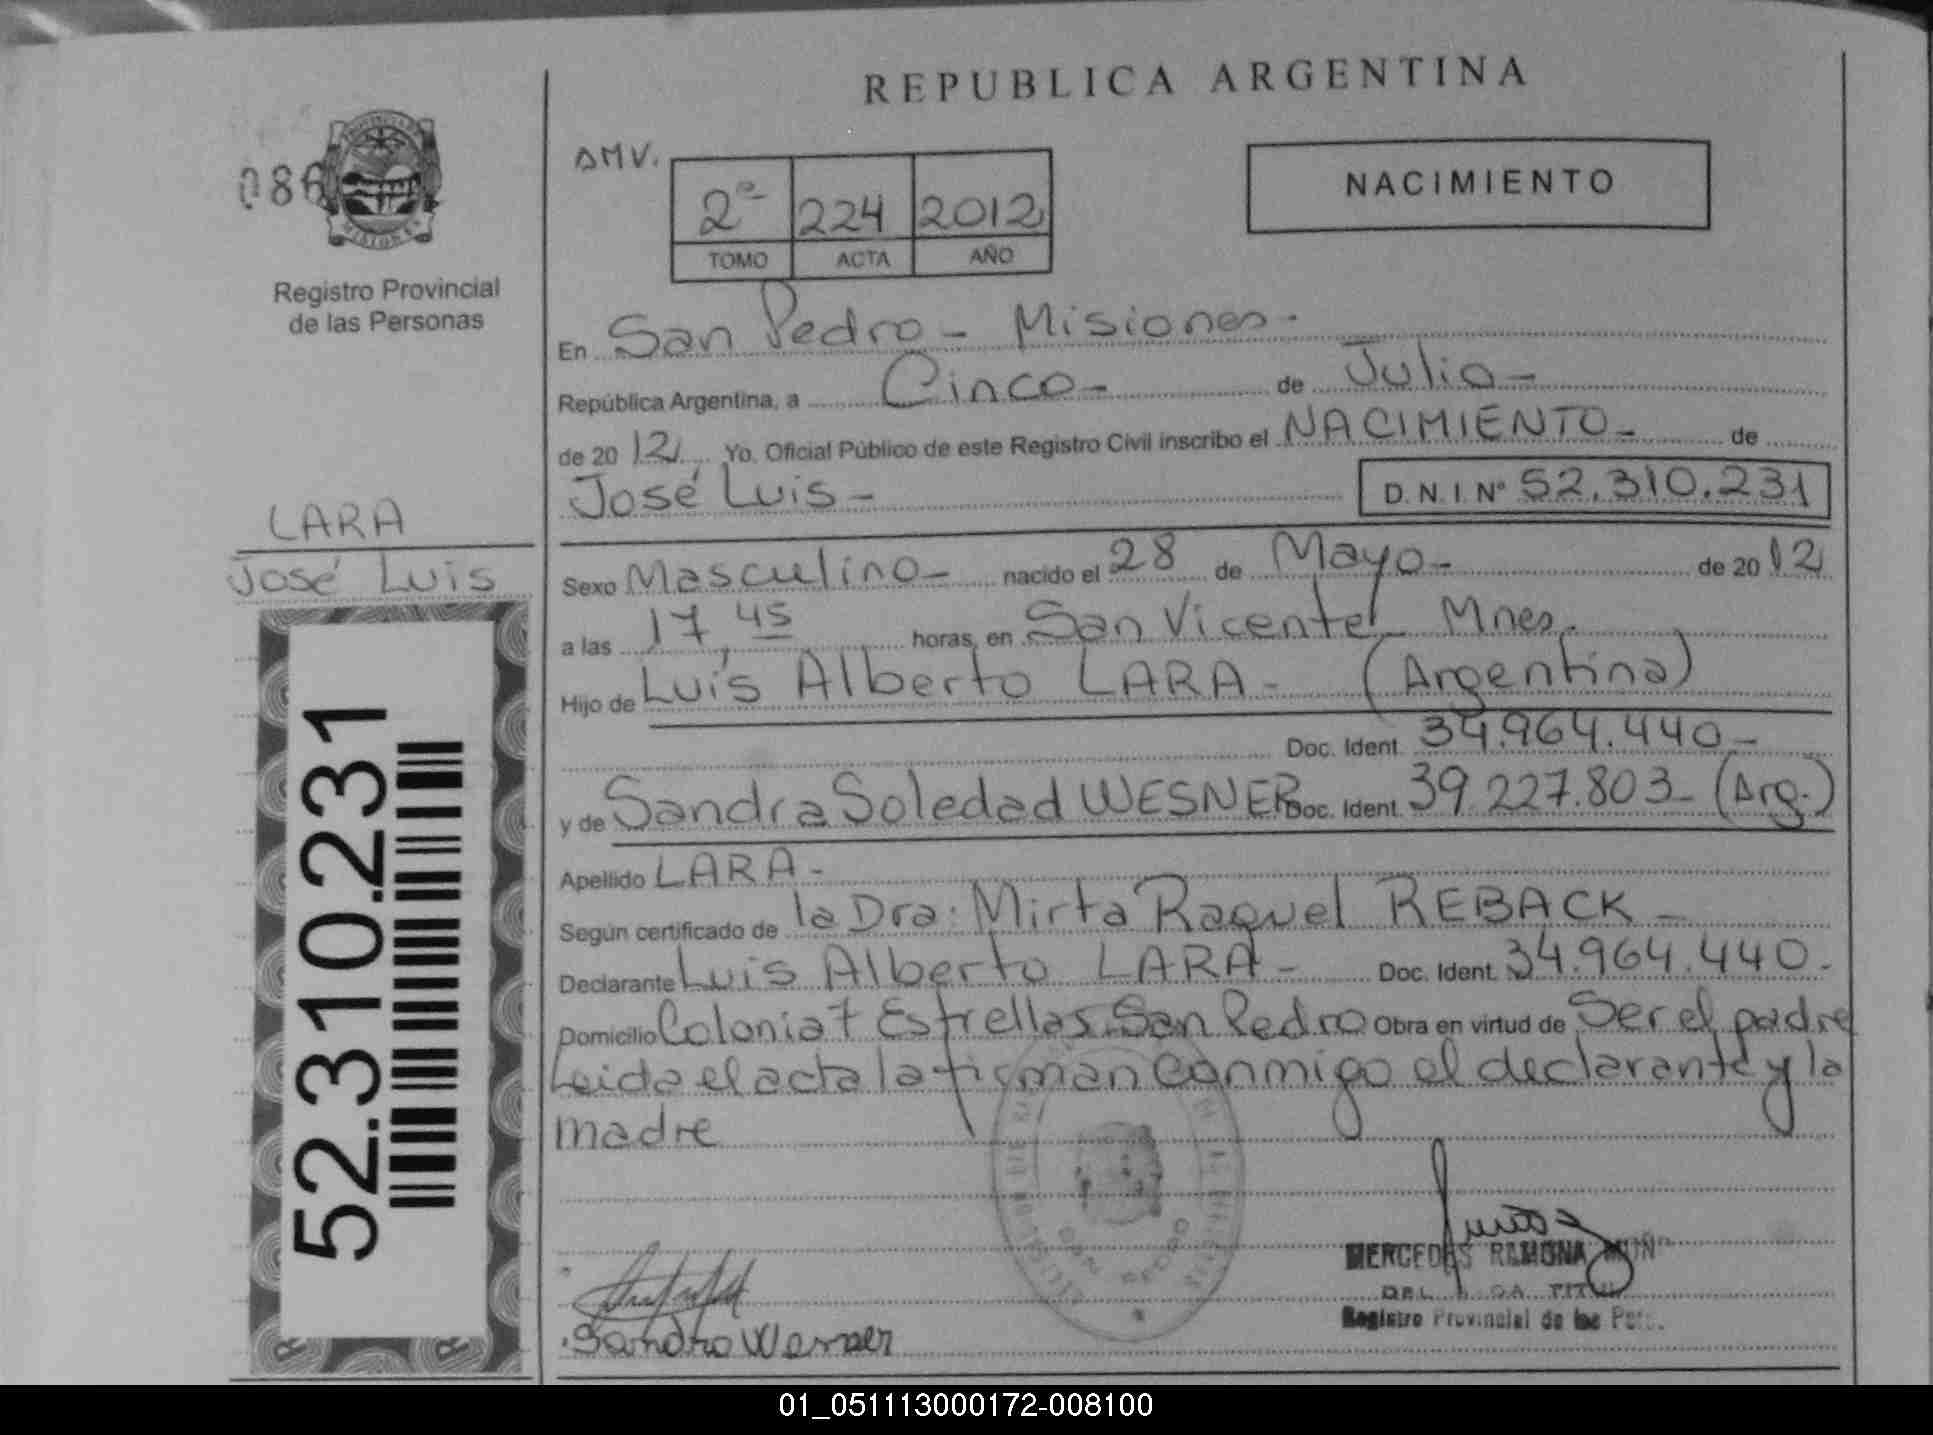 REPUBLICA ARGENTINA
086
PROVINCIA DE
MISIONES
Registro Provincial
de las Personas
AMV.
2º 224 2012
TOMO ACTA AÑO
NACIMIENTO
En San Pedro - Misiones.
República Argentina, a Cinco - de Julio -
de 2012, Yo. Oficial Público de este Registro Civil inscribo el NACIMIENTO - de
José Luis - D.N.I. Nº 52.310.231
LARA
José Luis
52.310.231
Sexo Masculino - nacido el 28 de Mayo - de 2012
a las 17,45 horas, en San Vicente - Mnes.
Hijo de Luis Alberto LARA - (Argentina)
Doc. Ident. 34.964.440 -
y de Sandra Soledad WESNER Doc. Ident. 39.227.803 - (Arg.)
Apellido LARA -
Según certificado de la Dra: Mirta Raquel REBACK -
Declarante Luis Alberto LARA - Doc. Ident. 34.964.440.-
Domicilio Colonia 7 Estrellas San Pedro Obra en virtud de Ser el padre
Leida el acta la firman conmigo el declarante y la
madre
SAN PEDRO
MERCEDES RAMONA
Registro Provincial de las
Sandra Wesner
01_051113000172-008100